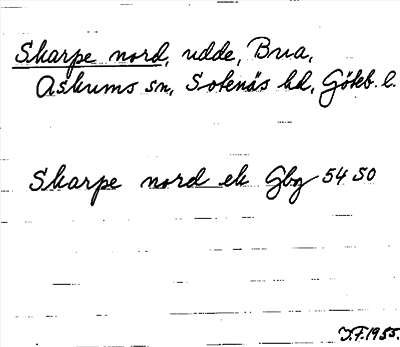 Skarpe nord, udde, Brua,
Askums sn, Sotenäs hd, Göteb. l.
Skarpe nord ek Gbg 54 SO
I.F. 1955.